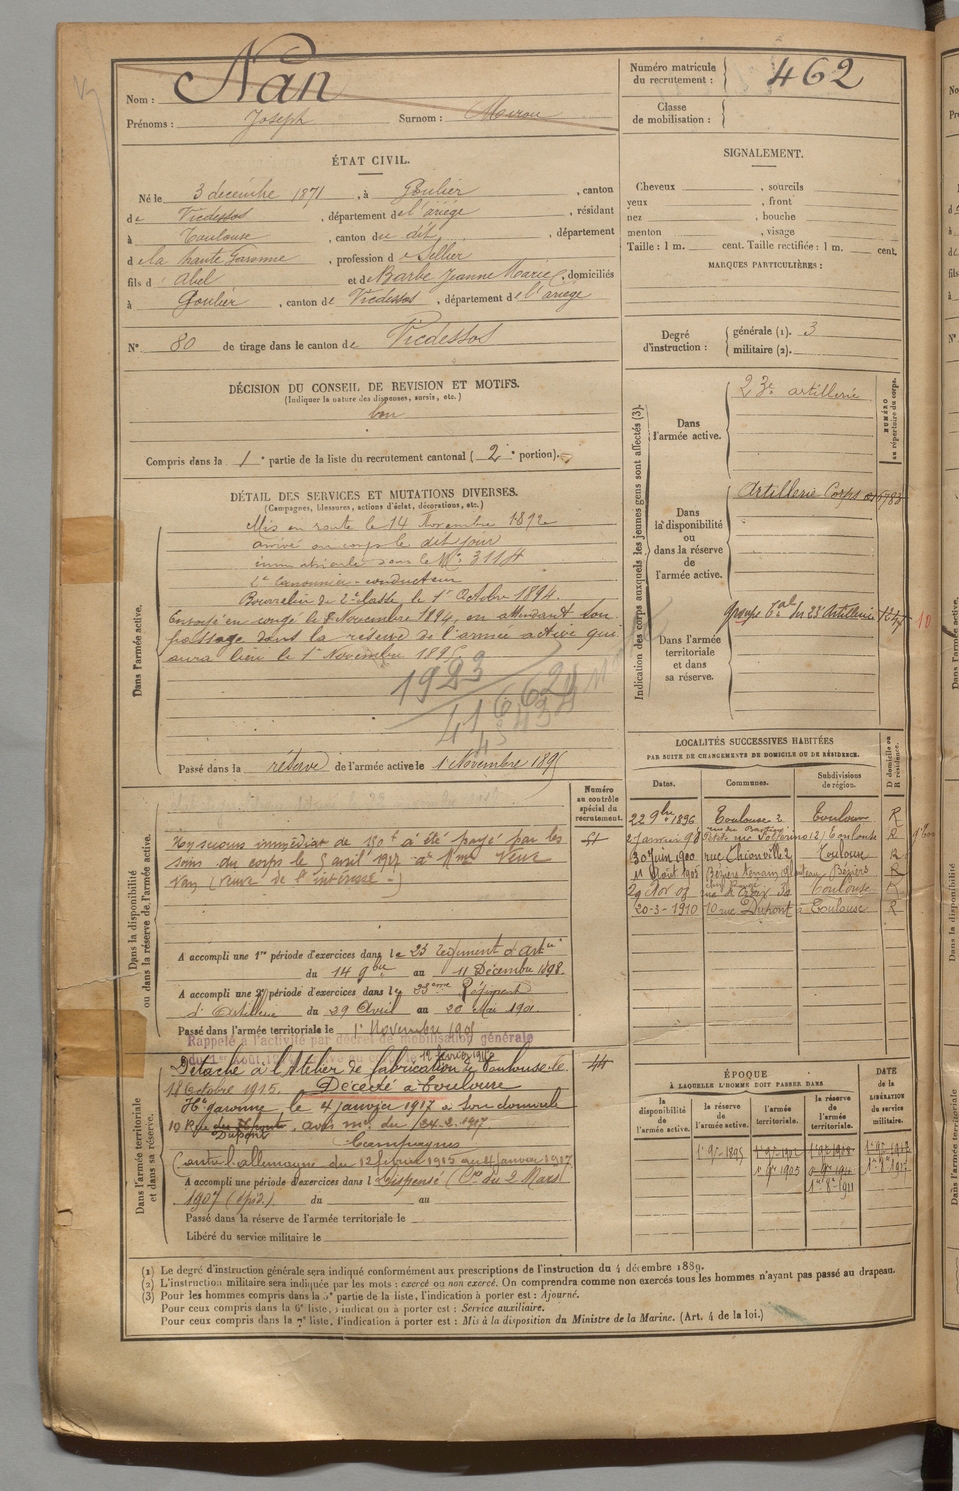 Nom : Nan
Prénoms : Joseph Surnom :
Numéro matricule du recrutement : 462
Classe de mobilisation :
ÉTAT CIVIL.
Né le 3 decembre 1871, à Goulier, canton
de Vicdessos, département de l'ariège, résidant
à Toulouse, canton du dit, département
de la haute Garonne, profession de Sellier
fils d' Abel et de Barbe Jeanne Marie, domiciliés
à Goulier, canton de Vicdessos, département de l'ariège
N° 80 de tirage dans le canton de Vicdessos
SIGNALEMENT.
Cheveux , sourcils
yeux , front
nez , bouche
menton , visage
Taille : 1 m. cent. Taille rectifiée : 1 m. cent.
MARQUES PARTICULIÈRES :
Degré d'instruction : générale (1). 3
militaire (2).
DÉCISION DU CONSEIL DE REVISION ET MOTIFS.
(Indiquer la nature des dispenses, sursis, etc.)
bon
Compris dans la 1e partie de la liste du recrutement cantonal (2e portion).
DÉTAIL DES SERVICES ET MUTATIONS DIVERSES.
(Campagnes, blessures, actions d'éclat, décorations, etc.)
Dans l'armée active.
Mis en route le 14 Novembre 1892
arrivé au corps le dit jour
immatriculé sous le No 3114
2e Canonnier-conducteur
Bourrelier de 2e classe le 1er Octobre 1894.
Envoyé en congé le 8 Novembre 1894, en attendant son
passage dans la réserve de l'armée active qui
aura lieu le 1er Novembre 1895
1923
Passé dans la réserve de l'armée active le 1 Novembre 1895
Indication des corps auxquels les jeunes gens sont affectés (3).
NUMÉRO au répertoire du corps.
Dans l'armée active.
23e artillerie
Dans la disponibilité ou dans la réserve de l'armée active.
Artillerie Corps
Dans l'armée territoriale et dans sa réserve.
Groupe Tal du 23 Artillerie
10
LOCALITÉS SUCCESSIVES HABITÉES
PAR SUITE DE CHANGEMENTS DE DOMICILE OU DE RÉSIDENCE.
Dates. Communes. Subdivisions de région. D domicile ou R résidence.
22 9bre 1896 Toulouse Toulouse R
2 janvier 98 Toulouse R
30 Juin 1900 rue Thionville 2 Toulouse R
11 Août 1905 Béziers R
29 Nov 07 Toulouse R
20-3-1910 10 rue Dupont à Toulouse R
Dans la disponibilité ou dans la réserve de l'armée active.
Numéro au contrôle spécial du recrutement.
Un secours immédiat de 150f a été payé par les
soins du corps le 5 avril 1917 à Mme Veuve
Nan (veuve de l'intéressé)
A accompli une 1re période d'exercices dans le 23 régiment d'Artie
du 14 9bre au 11 Décembre 1898.
A accompli une 2e période d'exercices dans le 23ème Régiment
d'Artillerie du 29 Avril au 26 Mai 1901
Passé dans l'armée territoriale le 1er Novembre 1905
Rappelé à l'activité par décret de mobilisation générale
du 1er Août
Dans l'armée territoriale et dans sa réserve.
44
Détaché à l'Atelier de fabrication de Toulouse le
18 Octobre 1915. Décédé à Toulouse
Hte garonne le 4 janvier 1917 à son domicile
10 Rue Dupont, avis mel du 24.2.1917
Campagnes
Contre l'allemagne du 12 février 1915 au 4 janvier 1917
A accompli une période d'exercices dans l Dispensé (Cre du 2 Mars
1907 (épid.) du au
Passé dans la réserve de l'armée territoriale le
Libéré du service militaire le
ÉPOQUE
À LAQUELLE L'HOMME DOIT PASSER DANS
DATE de la LIBÉRATION du service militaire.
la disponibilité de l'armée active. la réserve de l'armée active. l'armée territoriale. la réserve de l'armée territoriale.
1er 9bre 1895
1er 9bre 1905
(1) Le degré d'instruction générale sera indiqué conformément aux prescriptions de l'instruction du 4 décembre 1889.
(2) L'instruction militaire sera indiquée par les mots : exercé ou non exercé. On comprendra comme non exercés tous les hommes n'ayant pas passé au drapeau.
(3) Pour les hommes compris dans la 5e partie de la liste, l'indication à porter est : Ajourné.
Pour ceux compris dans la 6e liste, l'indication à porter est : Service auxiliaire.
Pour ceux compris dans la 7e liste, l'indication à porter est : Mis à la disposition du Ministre de la Marine. (Art. 4 de la loi.)